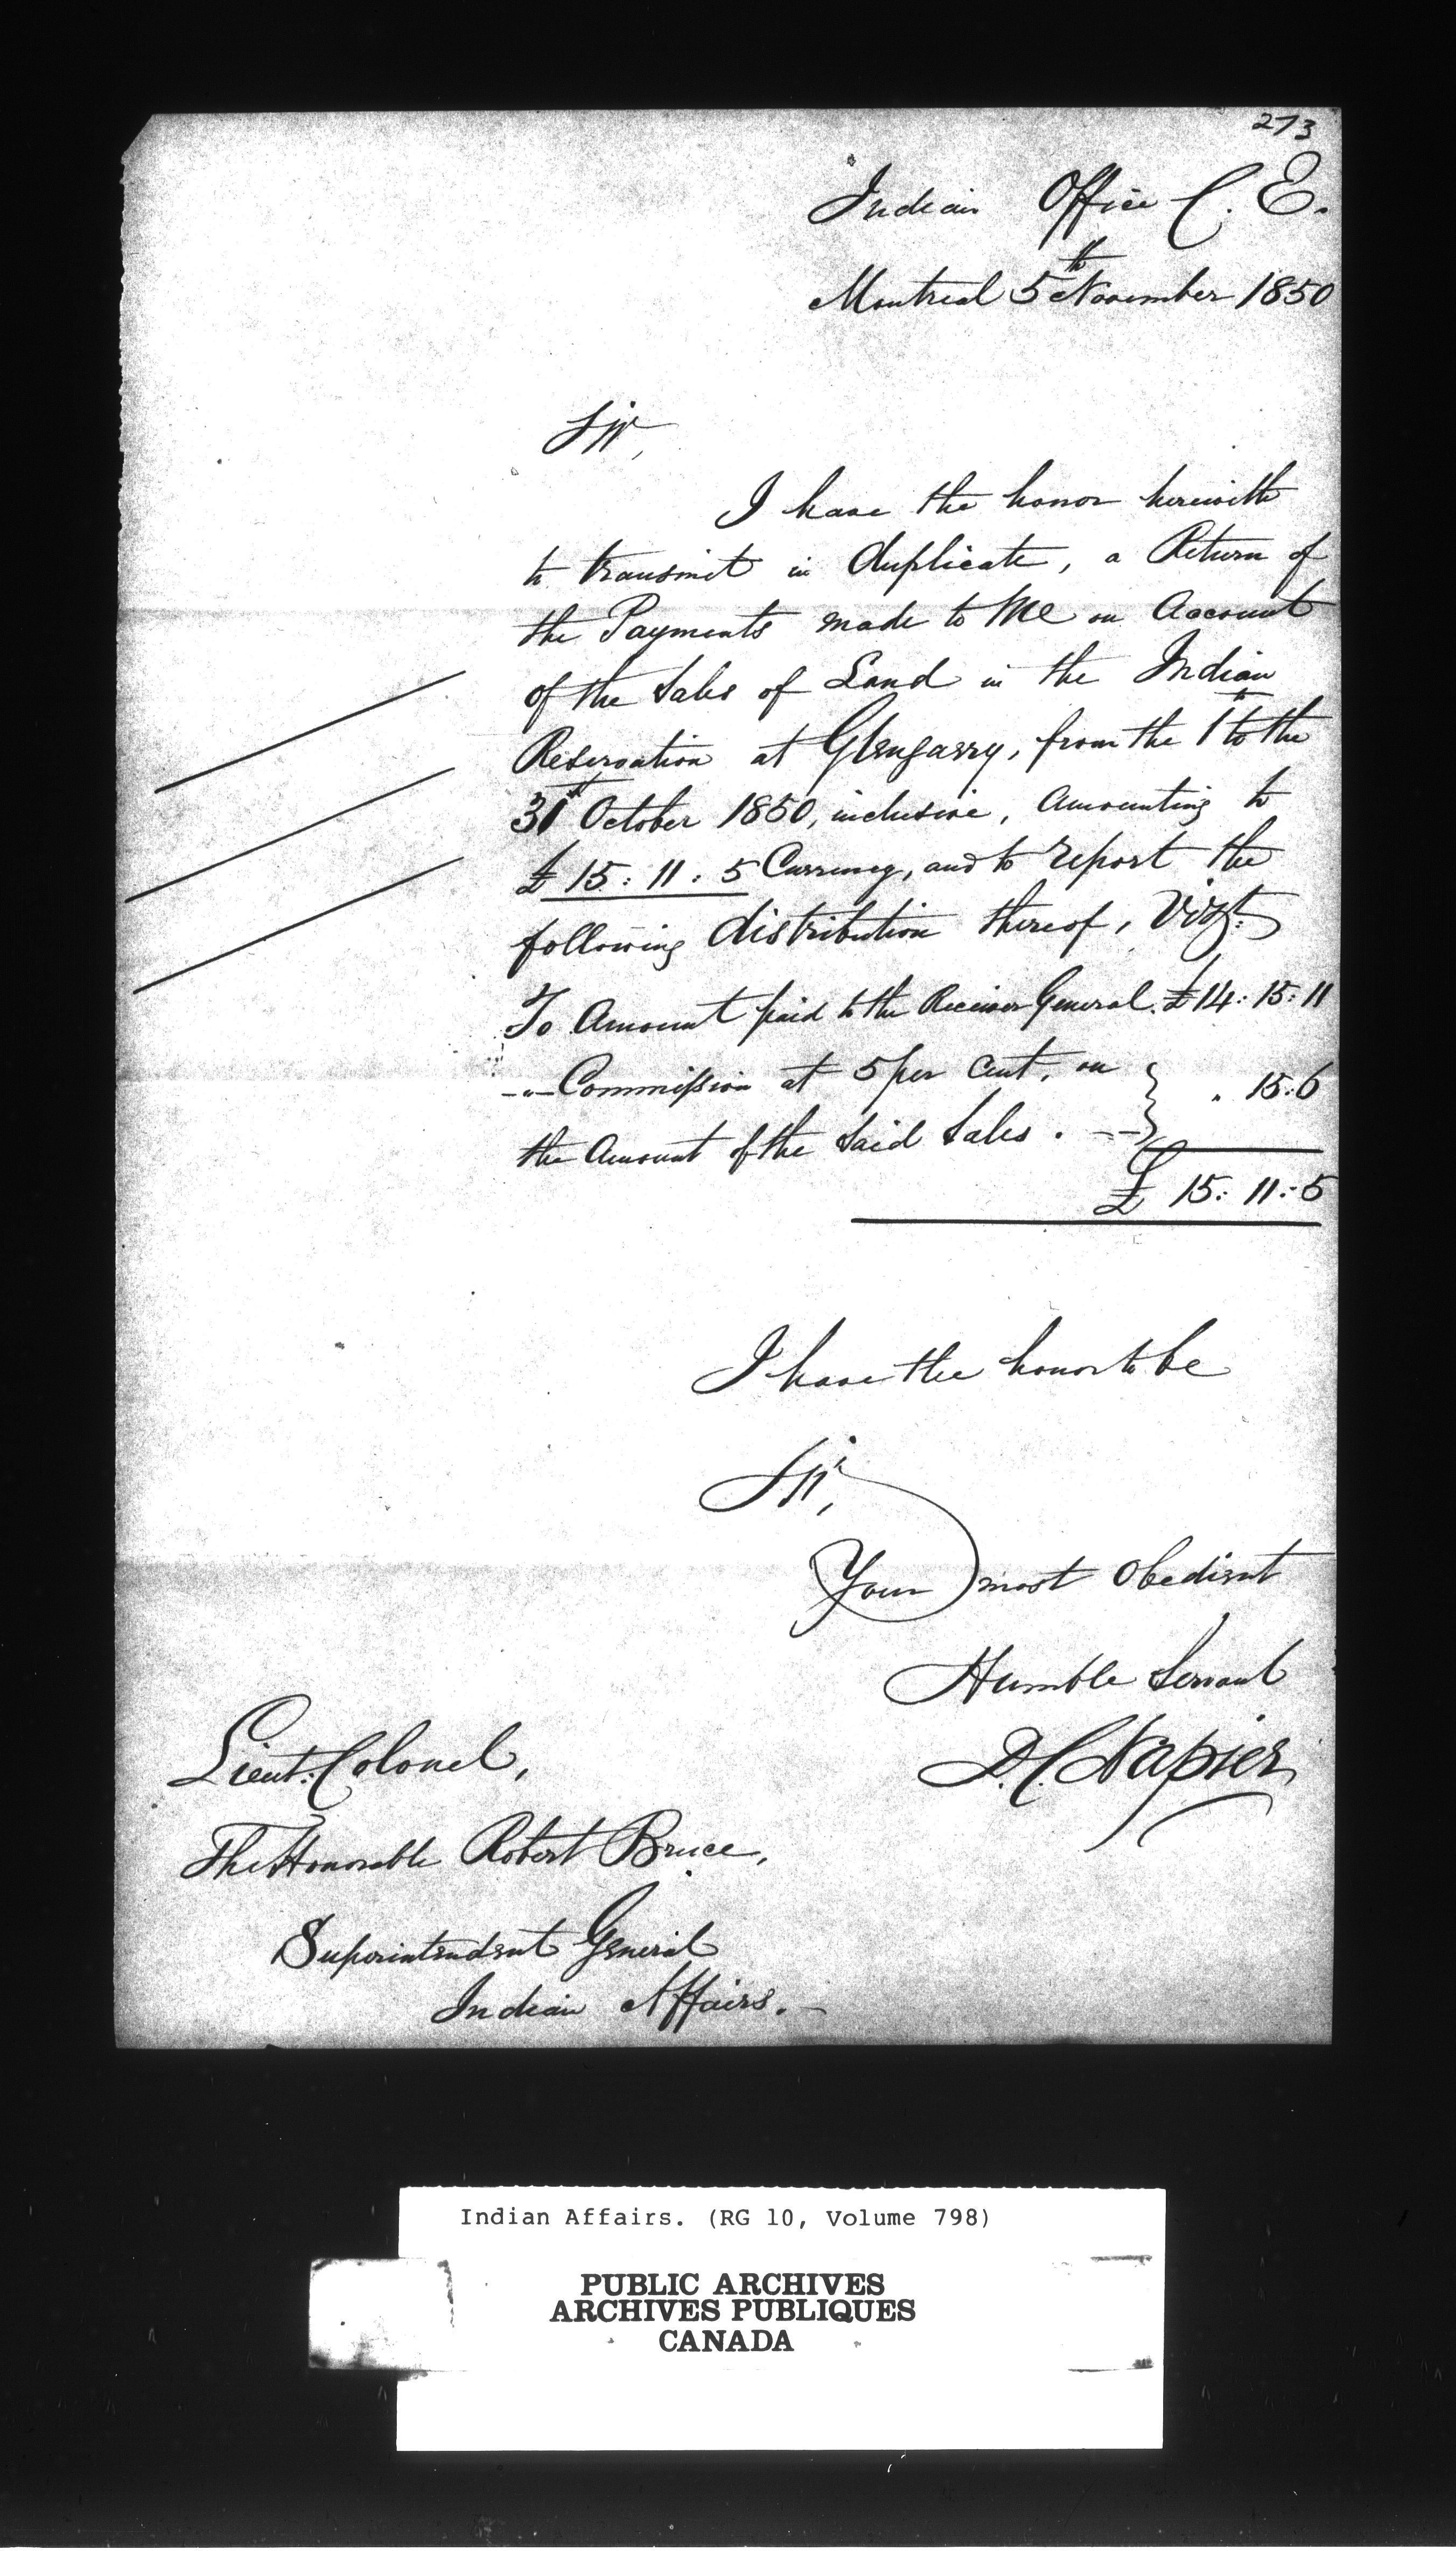 273
Indian Office C. E.
Montreal 5th November 1850
Sir,
I have the honor herewith
to transmit in duplicate, a Return of
the Payments made to Me on Account
of the Sales of Land in the Indian
Reservation at Glengarry, from the 1st to the
31st October 1850, inclusive, Amounting to
£ 15: 11: 5 Currency, and to report the
following distribution thereof, Vizt:
To Amount paid to the Receiver General. £14: 15: 11
-"- Commission at 5 per Cent. on
" 15:6
the Amount of the Said Sales. --
£ 15: 11: 5
I have the honor to be
Sir,
Your most Obedient
Humble Servant
D. C. Napier
Lieut: Colonel,
The Honorable Robert Bruce,
Superintendent General
Indian Affairs. -
Indian Affairs. (RG 10, Volume 798)
PUBLIC ARCHIVES
ARCHIVES PUBLIQUES
CANADA